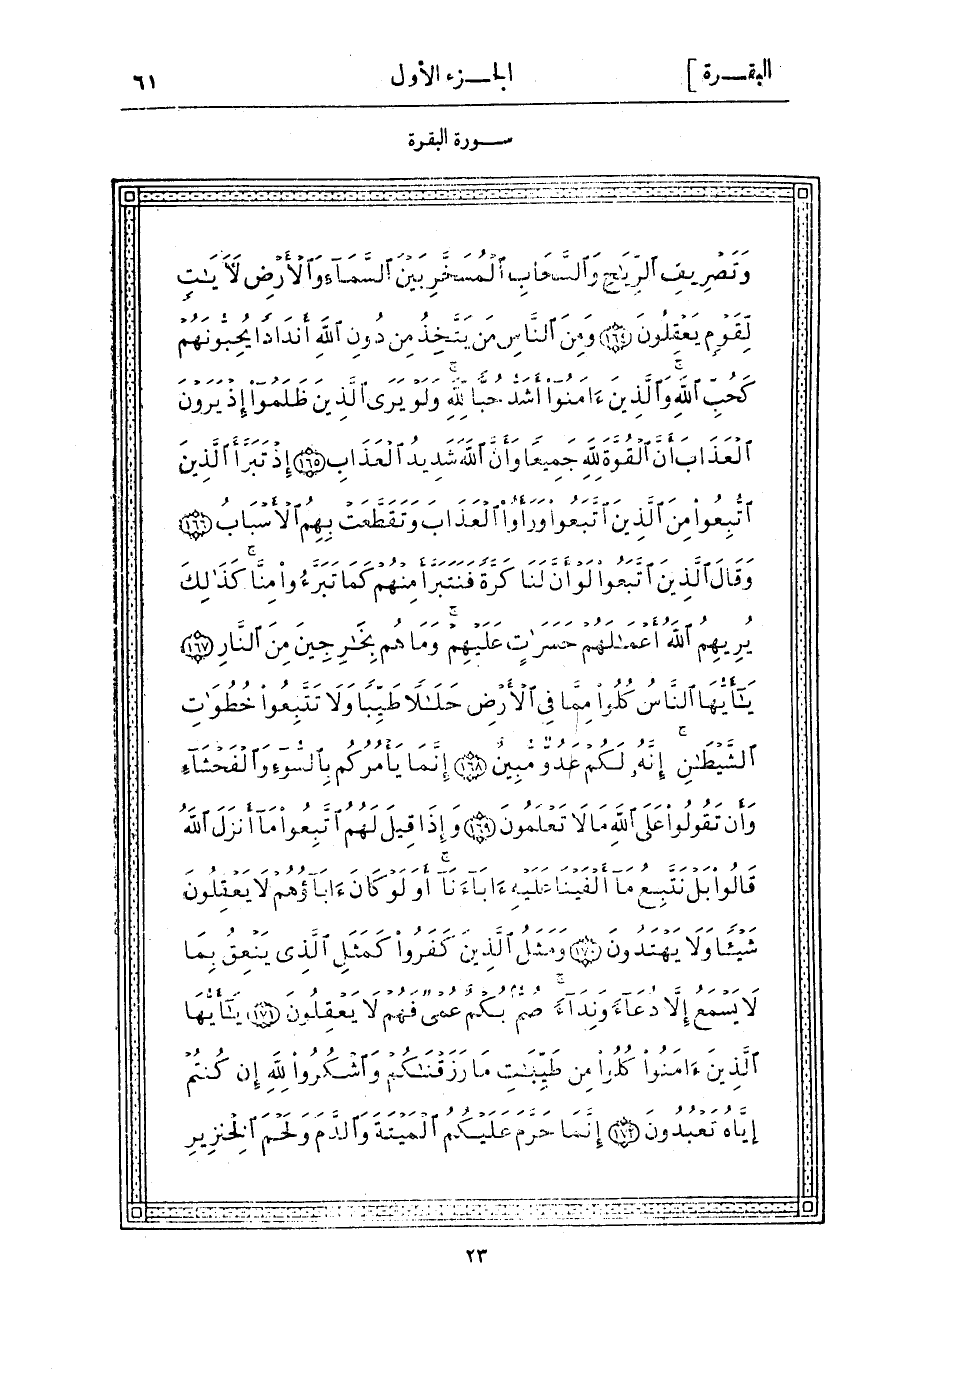 البقرة ]
الجزء الأول
٦١
سورة البقرة
وَتَصْرِيفِ ٱلرِّيَٰحِ وَٱلسَّحَابِ ٱلْمُسَخَّرِ بَيْنَ ٱلسَّمَآءِ وَٱلْأَرْضِ لَأٓيَٰتٍ
لِّقَوْمٍ يَعْقِلُونَ ١٦٤ وَمِنَ ٱلنَّاسِ مَن يَتَّخِذُ مِن دُونِ ٱللَّهِ أَندَادًا يُحِبُّونَهُمْ
كَحُبِّ ٱللَّهِ ۖ وَٱلَّذِينَ ءَامَنُوٓا۟ أَشَدُّ حُبًّا لِّلَّهِ ۗ وَلَوْ يَرَى ٱلَّذِينَ ظَلَمُوٓا۟ إِذْ يَرَوْنَ
ٱلْعَذَابَ أَنَّ ٱلْقُوَّةَ لِلَّهِ جَمِيعًا وَأَنَّ ٱللَّهَ شَدِيدُ ٱلْعَذَابِ ١٦٥ إِذْ تَبَرَّأَ ٱلَّذِينَ
ٱتُّبِعُوا۟ مِنَ ٱلَّذِينَ ٱتَّبَعُوا۟ وَرَأَوُا۟ ٱلْعَذَابَ وَتَقَطَّعَتْ بِهِمُ ٱلْأَسْبَابُ ١٦٦
وَقَالَ ٱلَّذِينَ ٱتَّبَعُوا۟ لَوْ أَنَّ لَنَا كَرَّةً فَنَتَبَرَّأَ مِنْهُمْ كَمَا تَبَرَّءُوا۟ مِنَّا ۗ كَذَٰلِكَ
يُرِيهِمُ ٱللَّهُ أَعْمَٰلَهُمْ حَسَرَٰتٍ عَلَيْهِمْ ۖ وَمَا هُم بِخَٰرِجِينَ مِنَ ٱلنَّارِ ١٦٧
يَٰٓأَيُّهَا ٱلنَّاسُ كُلُوا۟ مِمَّا فِى ٱلْأَرْضِ حَلَٰلًا طَيِّبًا وَلَا تَتَّبِعُوا۟ خُطُوَٰتِ
ٱلشَّيْطَٰنِ ۚ إِنَّهُۥ لَكُمْ عَدُوٌّ مُّبِينٌ ١٦٨ إِنَّمَا يَأْمُرُكُم بِٱلسُّوٓءِ وَٱلْفَحْشَآءِ
وَأَن تَقُولُوا۟ عَلَى ٱللَّهِ مَا لَا تَعْلَمُونَ ١٦٩ وَإِذَا قِيلَ لَهُمُ ٱتَّبِعُوا۟ مَآ أَنزَلَ ٱللَّهُ
قَالُوا۟ بَلْ نَتَّبِعُ مَآ أَلْفَيْنَا عَلَيْهِ ءَابَآءَنَآ ۗ أَوَلَوْ كَانَ ءَابَآؤُهُمْ لَا يَعْقِلُونَ
شَيْـًٔا وَلَا يَهْتَدُونَ ١٧٠ وَمَثَلُ ٱلَّذِينَ كَفَرُوا۟ كَمَثَلِ ٱلَّذِى يَنْعِقُ بِمَا
لَا يَسْمَعُ إِلَّا دُعَآءً وَنِدَآءً ۚ صُمٌّۢ بُكْمٌ عُمْىٌ فَهُمْ لَا يَعْقِلُونَ ١٧١ يَٰٓأَيُّهَا
ٱلَّذِينَ ءَامَنُوا۟ كُلُوا۟ مِن طَيِّبَٰتِ مَا رَزَقْنَٰكُمْ وَٱشْكُرُوا۟ لِلَّهِ إِن كُنتُمْ
إِيَّاهُ تَعْبُدُونَ ١٧٢ إِنَّمَا حَرَّمَ عَلَيْكُمُ ٱلْمَيْتَةَ وَٱلدَّمَ وَلَحْمَ ٱلْخِنزِيرِ
٢٣